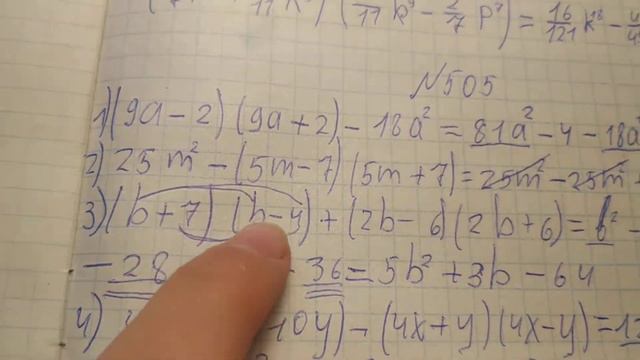 11 k⁴) (7/11 k⁴ - 2/7 p⁷) = 16/121 k⁸ -
№505
1) (9a - 2) (9a + 2) - 18a² = 81a² - 4 - 18a²
2) 25m² - (5m - 7) (5m + 7) = 25m² - 25m²
3) (b + 7) (b - 4) + (2b - 6) (2b + 6) = b² -
- 28 - 36 = 5b² + 3b - 64
4) 10y) - (4x + y) (4x - y) =